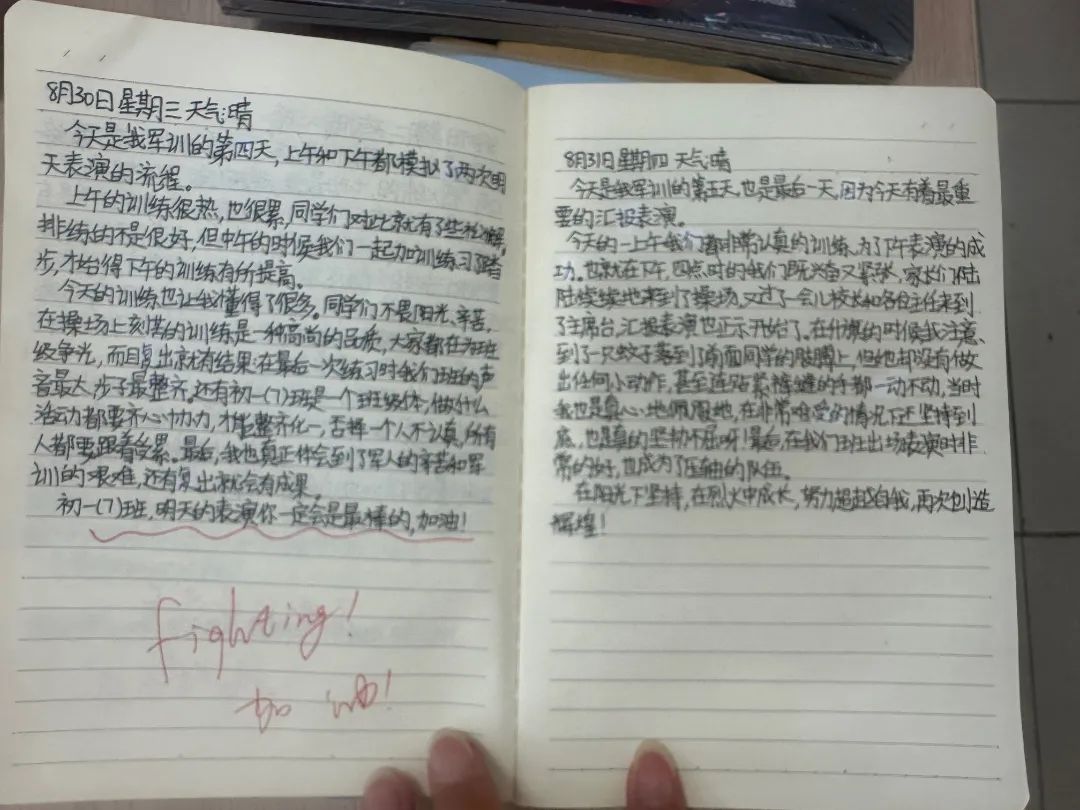 8月30日 星期三 天气:晴
今天是我军训的第四天,上午和下午都模拟了两次明
天表演的流程。
上午的训练很热,也很累,同学们对此就有了些松懈,
排练的不是很好,但中午的时候我们一起加训练习了踏
步,才给得下午的训练有所提高。
今天的训练也让我懂得了很多。同学们不畏阳光、辛苦,
在操场上刻苦的训练是一种高尚的品质,大家都在为班
级争光,而且复出就有结果:在最后一次练习时我们班的声
音最大,步子最整齐。还有初一(7)班是一个班级体,做什么
活动都要齐心协力,才能整齐化一,否择一个人不认真,所有
人都要跟着受累。最后,我也真正体会到了军人的辛苦和军
训的艰难,还有复出就会有成果。
初一(7)班,明天的表演你一定会是最棒的,加油!
fighting!
加油!
8月31日 星期四 天气:晴
今天是我军训的第五天,也是最后一天,因为今天有着最重
要的汇报表演。
今天的一上午我们都非常认真的训练,为了下午表演的成
功。也就在下午,四点时的我们既兴奋又紧张,家长们陆
陆续续地来到了操场,又过了一会儿校长和各位主任来到
了主席台,汇报表演也正示开始了。在升旗的时候我注意
到了一只蚊子落到了前面同学的胳膊上,但她却没有做
出任何小动作,甚至连贴紧裤缝的手都一动不动,当时
我也是真心地佩服地,在非常难受的情况下还坚持到
底,也是真的坚韧不屈呀!最后,在我们班出场表演时非
常的好,也成为了压轴的队伍。
在阳光下坚持,在烈火中成长,努力超越自我,再次创造
辉煌!